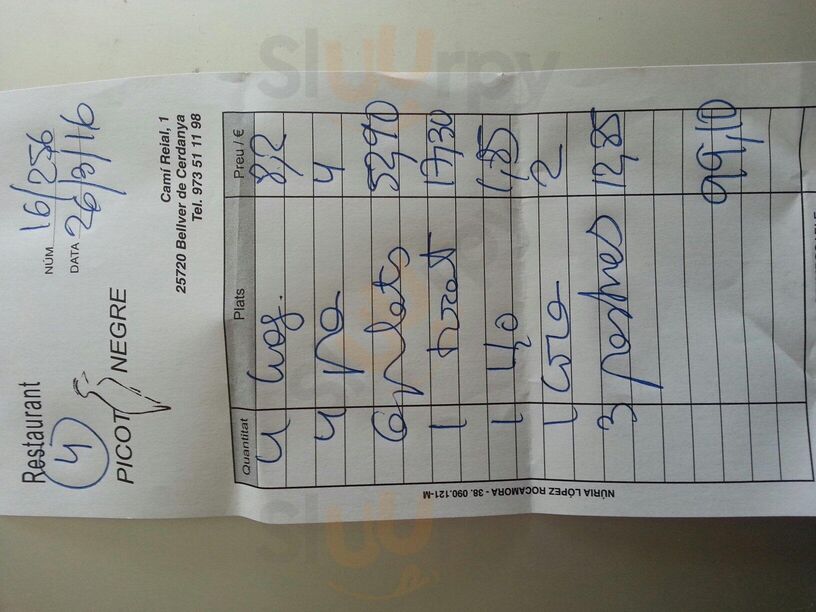 Restaurant
4
PICOT NEGRE
NÚM 16/256
DATA 26/3/16
Camí Reial, 1
25720 Bellver de Cerdanya
Tel. 973 51 11 98
Quantitat Plats Preu / €
4 8,2
4 pa 4
6 plats 52,90
1 17,30
1 H2O 1,85
1 Coca 2
3 postres 12,85
99,10
NÚRIA LÓPEZ ROCAMORA - 38. 090.121-M
Sluurpy
Sluurpy